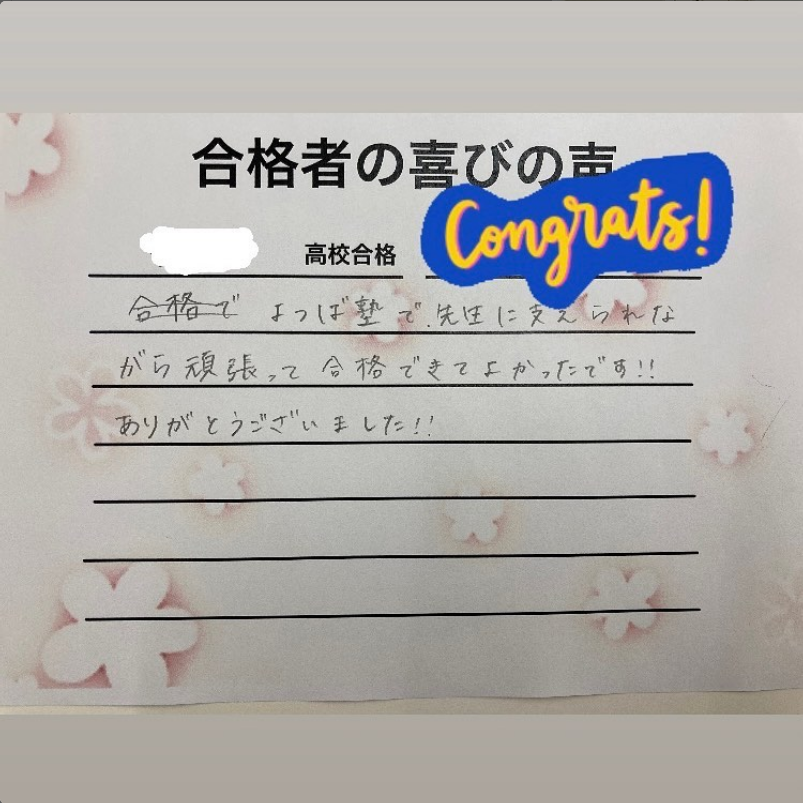 合格者の喜びの声
Congrats!
高校合格
合格で よつば塾で、先生に支えられな
がら頑張って 合格できてよかったです!!
ありがとうございました!!